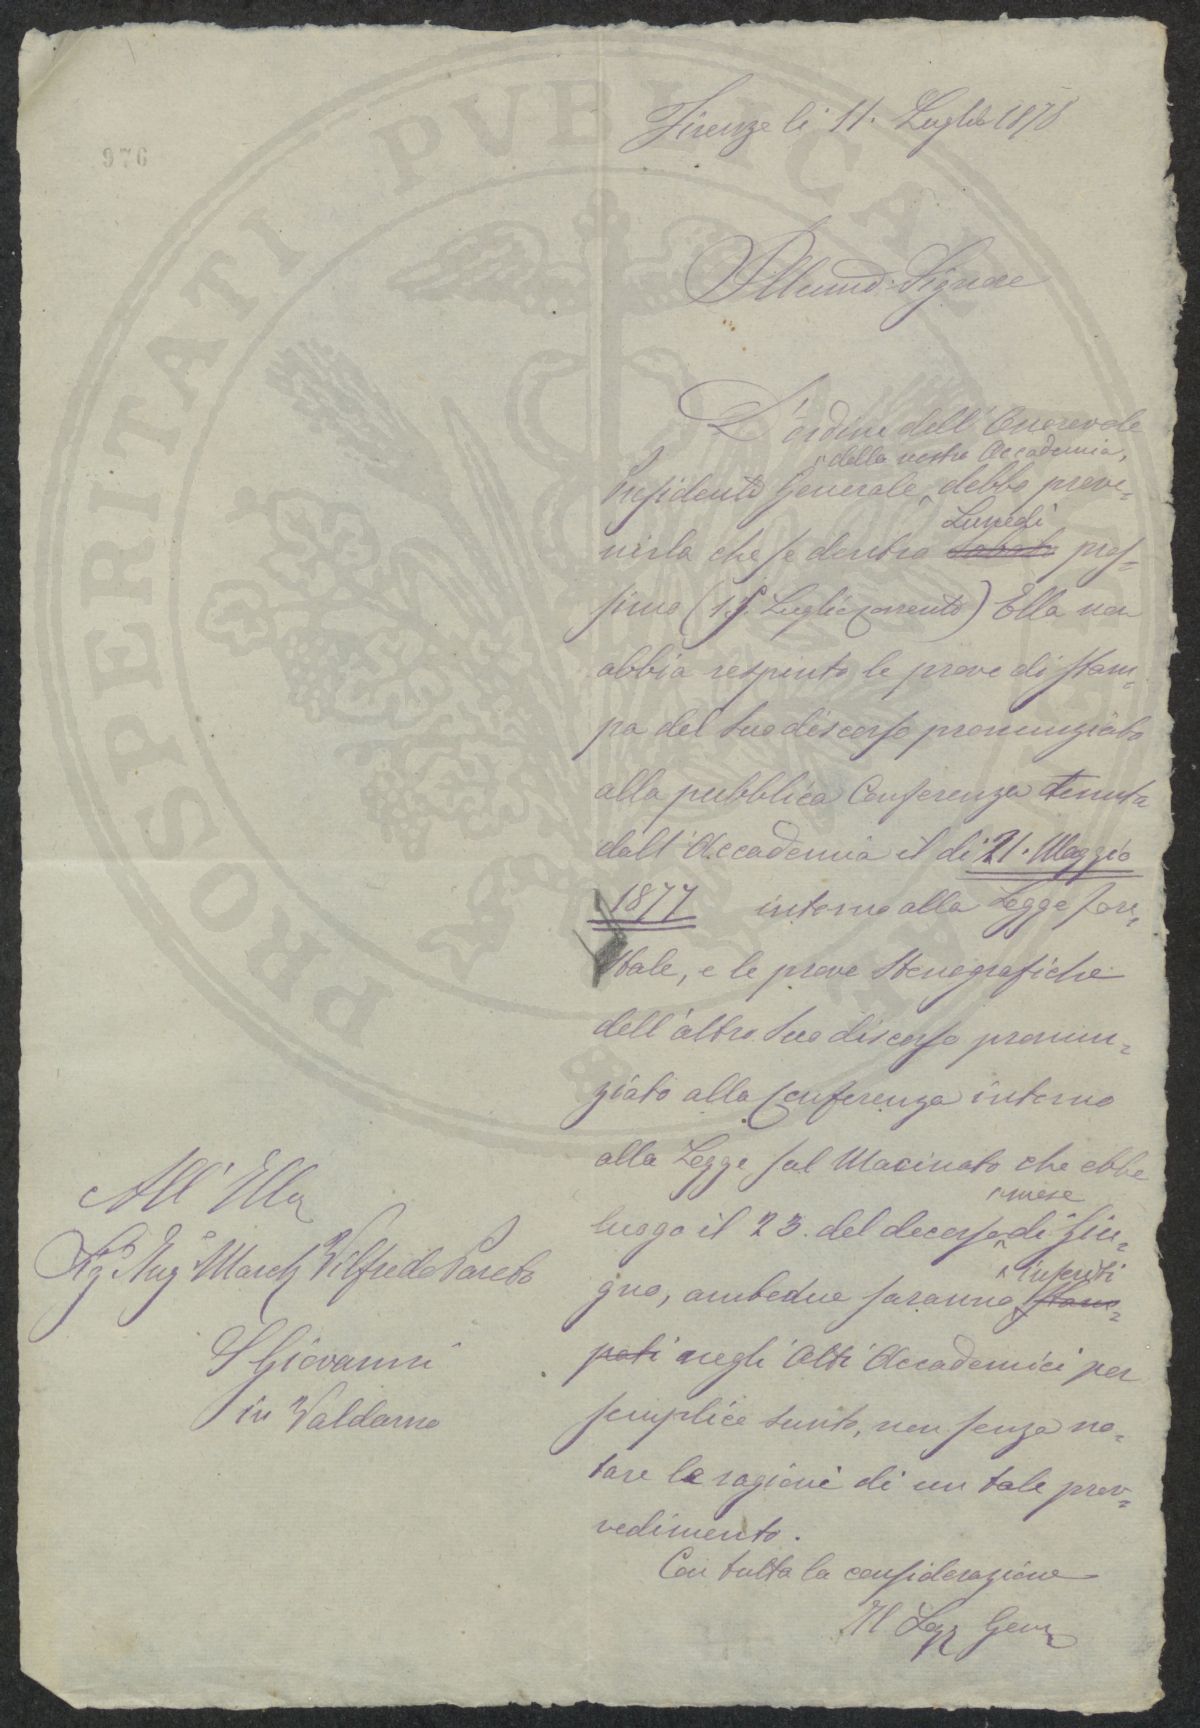 976
Firenze li 11. Luglio 1878
Illmo Signore
D'ordine dell'Onorevole
della nostra Accademia,
Presidente Generale, debbo preve=
Lunedì
nirla che se dentro sabato pros=
simo (15. Luglio corrente) Ella non
abbia respinto le prove di stam=
pa del suo discorso pronunziato
alla pubblica Conferenza tenuta
dall'Accademia il dì 21. Maggio
1877 intorno alla Legge fore=
stale, e le prove stenografiche
dell'altro suo discorso pronun=
ziato alla Conferenza intorno
alla Legge sul Macinato che ebbe
mese
luogo il 23. del decorso di Giu=
inseriti
gno, ambedue saranno stam=
pati negli Atti Accademici per
semplice sunto, non senza no=
tare le ragioni di un tale prov=
vedimento.
Con tutta la considerazione
Il Seg Gen
All'Ill
Sig Ing March Vilfredo Pareto
S Giovanni
in Valdarno
PROSPERITATI PVBLICAE